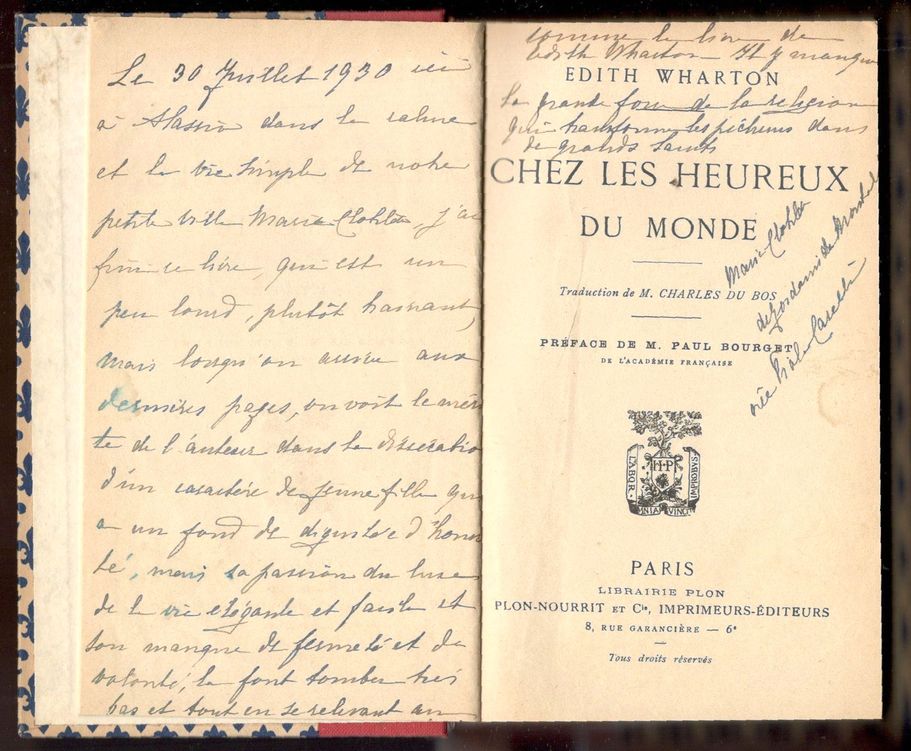 Le 30 Juillet 1930 ici
à Alassio dans le calme
et la vie simple de notre
petite villa Marie Clohilda, j'ai
fini ce livre, qui est un
peu lourd, plutôt
mais lorsqu'on arrive aux
dernières pages, on voit le méri
te de l'auteur dans la dissectio
d'un caractère de jeune fille qui
a un fond de dignité e d'honne
té, mais sa passion du luxe
de la vie élégante et facile et
son manque de fermeté et de
volonté, la font tomber très
bas et tout en se relevant un
comme le livre de
Edith Wharton Il y manque
EDITH WHARTON
la grande force de la religion
qui transforme les pécheurs dans
de grands saints
CHEZ LES HEUREUX
DU MONDE
Marie Clohilda
née
Traduction de M. CHARLES DU BOS
PRÉFACE DE M. PAUL BOURGET
DE L'ACADÉMIE FRANÇAISE
LABOR · OMNIA VINCIT IMPROBVS
H·P
PARIS
LIBRAIRIE PLON
PLON-NOURRIT ET Cie, IMPRIMEURS-ÉDITEURS
8, RUE GARANCIÈRE — 6e
Tous droits réservés